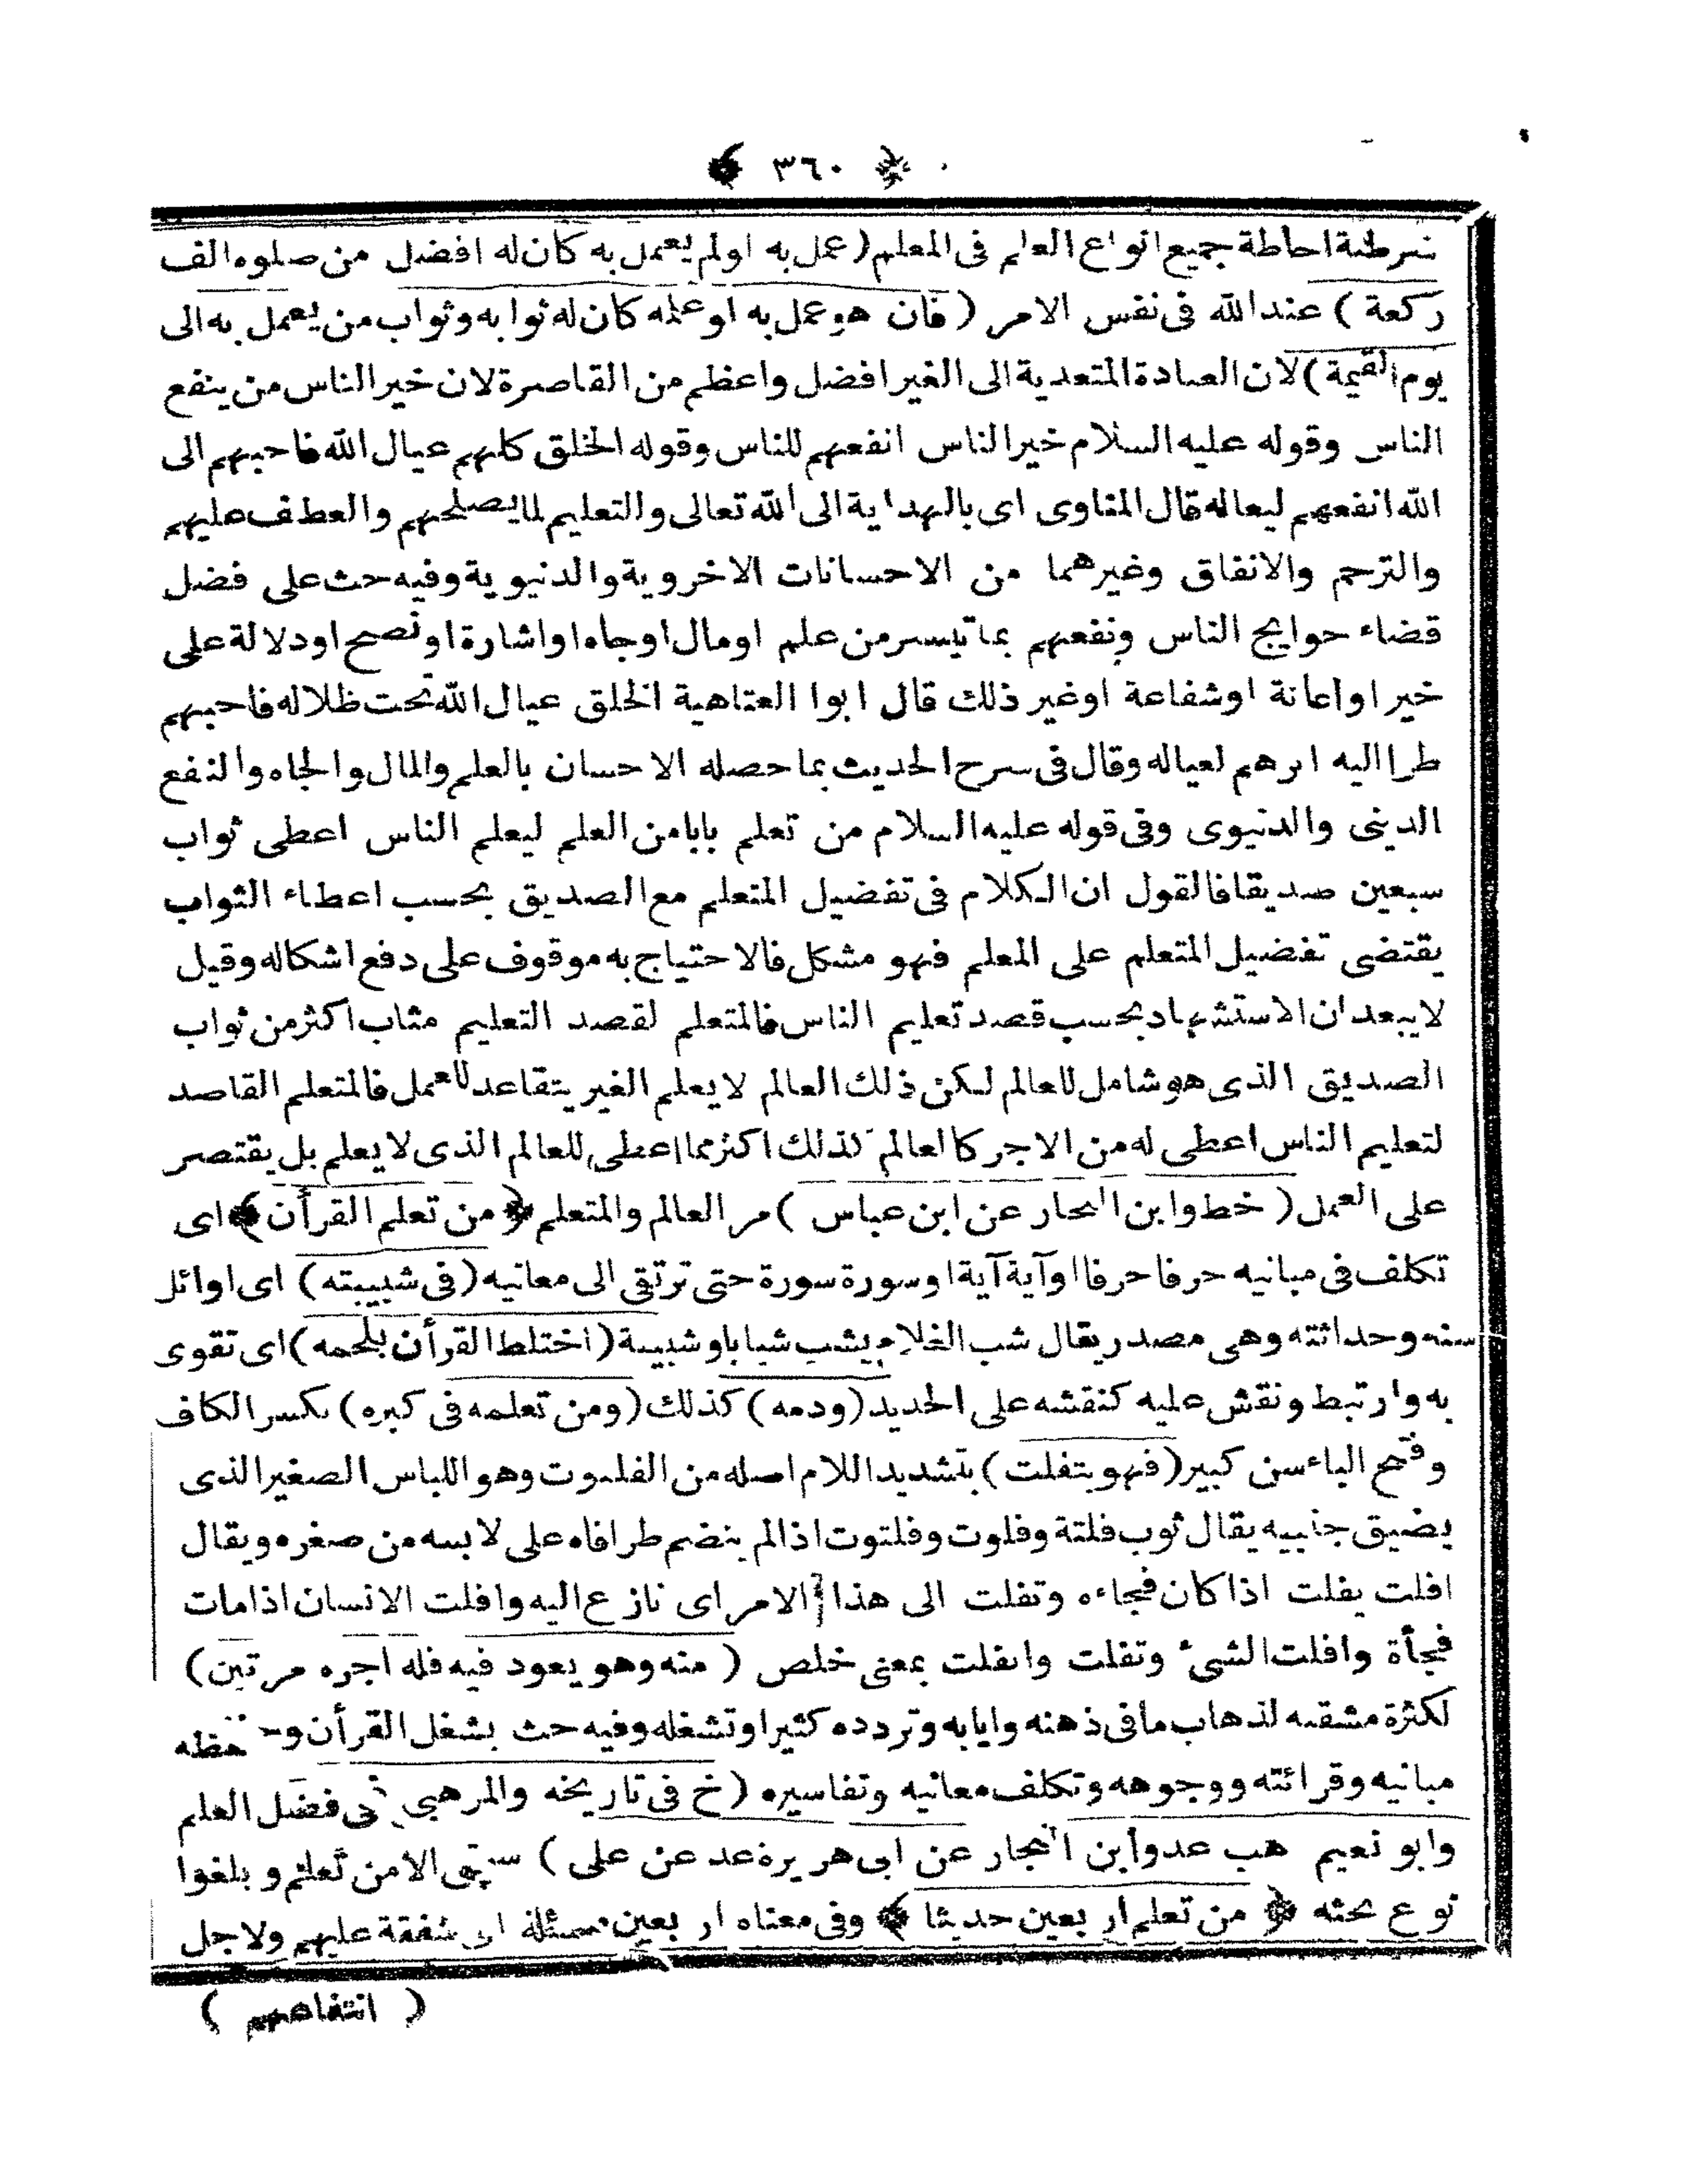 ﴿ ٣٦٠ ﴾
شرطية احاطة جميع انواع العلم فى المعلم ( عمل به اولم يعمل به كان له افضل من صلوة الف
ركعة ) عند الله فى نفس الامر ( فان هو عمل به او علمه كان له ثوابه وثواب من يعمل به الى
يوم القيمة ) لان العبادة المتعدية الى الغير افضل واعظم من القاصرة لان خير الناس من ينفع
الناس وقوله عليه السلام خير الناس انفعهم للناس وقوله الخلق كلهم عيال الله فاحبهم الى
الله انفعهم لعياله قال المناوى اى بالهداية الى الله تعالى والتعليم لما يصلحهم والعطف عليهم
والترحم والانفاق وغيرهما من الاحسانات الاخروية والدنيوية وفيه حث على فضل
قضاء حوايج الناس ونفعهم بما تيسر من علم اومال اوجاه او اشارة او نصح او دلالة على
خير او اعانة اوشفاعة اوغير ذلك قال ابوا العتاهية الخلق عيال الله تحت ظلاله فاحبهم
طرا اليه ابرهم لعياله وقال فى شرح الحديث بما حصله الاحسان بالعلم والمال والجاه والنفع
الدينى والدنيوى وفى قوله عليه السلام من تعلم بابا من العلم ليعلم الناس اعطى ثواب
سبعين صديقا فالقول ان الكلام فى تفضيل المتعلم مع الصديق بحسب اعطاء الثواب
يقتضى تفضيل المتعلم على المعلم فهو مشكل فالاحتياج به موقوف على دفع اشكاله وقيل
لايبعد ان الاستشهاد بحسب قصد تعليم الناس فالمتعلم لقصد التعليم مثاب اكثر من ثواب
الصديق الذى هو شامل للعالم لكن ذلك العالم لا يعلم الغير يتقاعد للعمل فالمتعلم القاصد
لتعليم الناس اعطى له من الاجر كالعالم كذلك اكثر مما اعطى للعالم الذى لا يعلم بل يقتصر
على العمل ( خط وابن النجار عن ابن عباس ) مر العالم والمتعلم ﴿ من تعلم القرأن ﴾ اى
تكلف فى مبانيه حرفا حرفا او آية آية او سورة سورة حتى ترتقى الى معانيه ( فى شبيبته ) اى اوائل
سنه وحداثته وهى مصدر يقال شب الغلام يشب شبابا وشبيبة ( اختلط القرأن بلحمه ) اى تقوى
به وارتبط ونقش عليه كنقشه على الحديد ( ودمه ) كذلك ( ومن تعلمه فى كبره ) بكسر الكاف
وفتح الباء سن كبير ( فهو يتفلت ) بتشديد اللام اصله من الفلوت وهو اللباس الصغير الذى
يضيق جنبيه يقال ثوب فلتة وفلوت وفلتوت اذا لم ينضم طرافاه على لابسه من صغره ويقال
افلت يفلت اذا كان فجاءه وتفلت الى هذا الامر اى نازع اليه وافلت الانسان اذا مات
فجأة وافلت الشئ وتفلت وانفلت بمعنى خلص ( منه وهو يعود فيه فله اجره مرتين )
لكثرة مشقته لذهاب ما فى ذهنه وايابه وتردده كثيرا وتشغله وفيه حث بشغل القرأن وحفظه
مبانيه وقرائته ووجوهه وتكلف معانيه وتفاسيره ( خ فى تاريخه والمرهبى فى فضل العلم
وابو نعيم هب عد وأبن النجار عن ابى هريرة عد عن على ) سبق الامن تعلم وبلغوا
نوع بحثه ﴿ من تعلم اربعين حديثا ﴾ وفى معناه اربعين مسئلة اى شفقة عليهم ولاجل
( انتفاعهم )